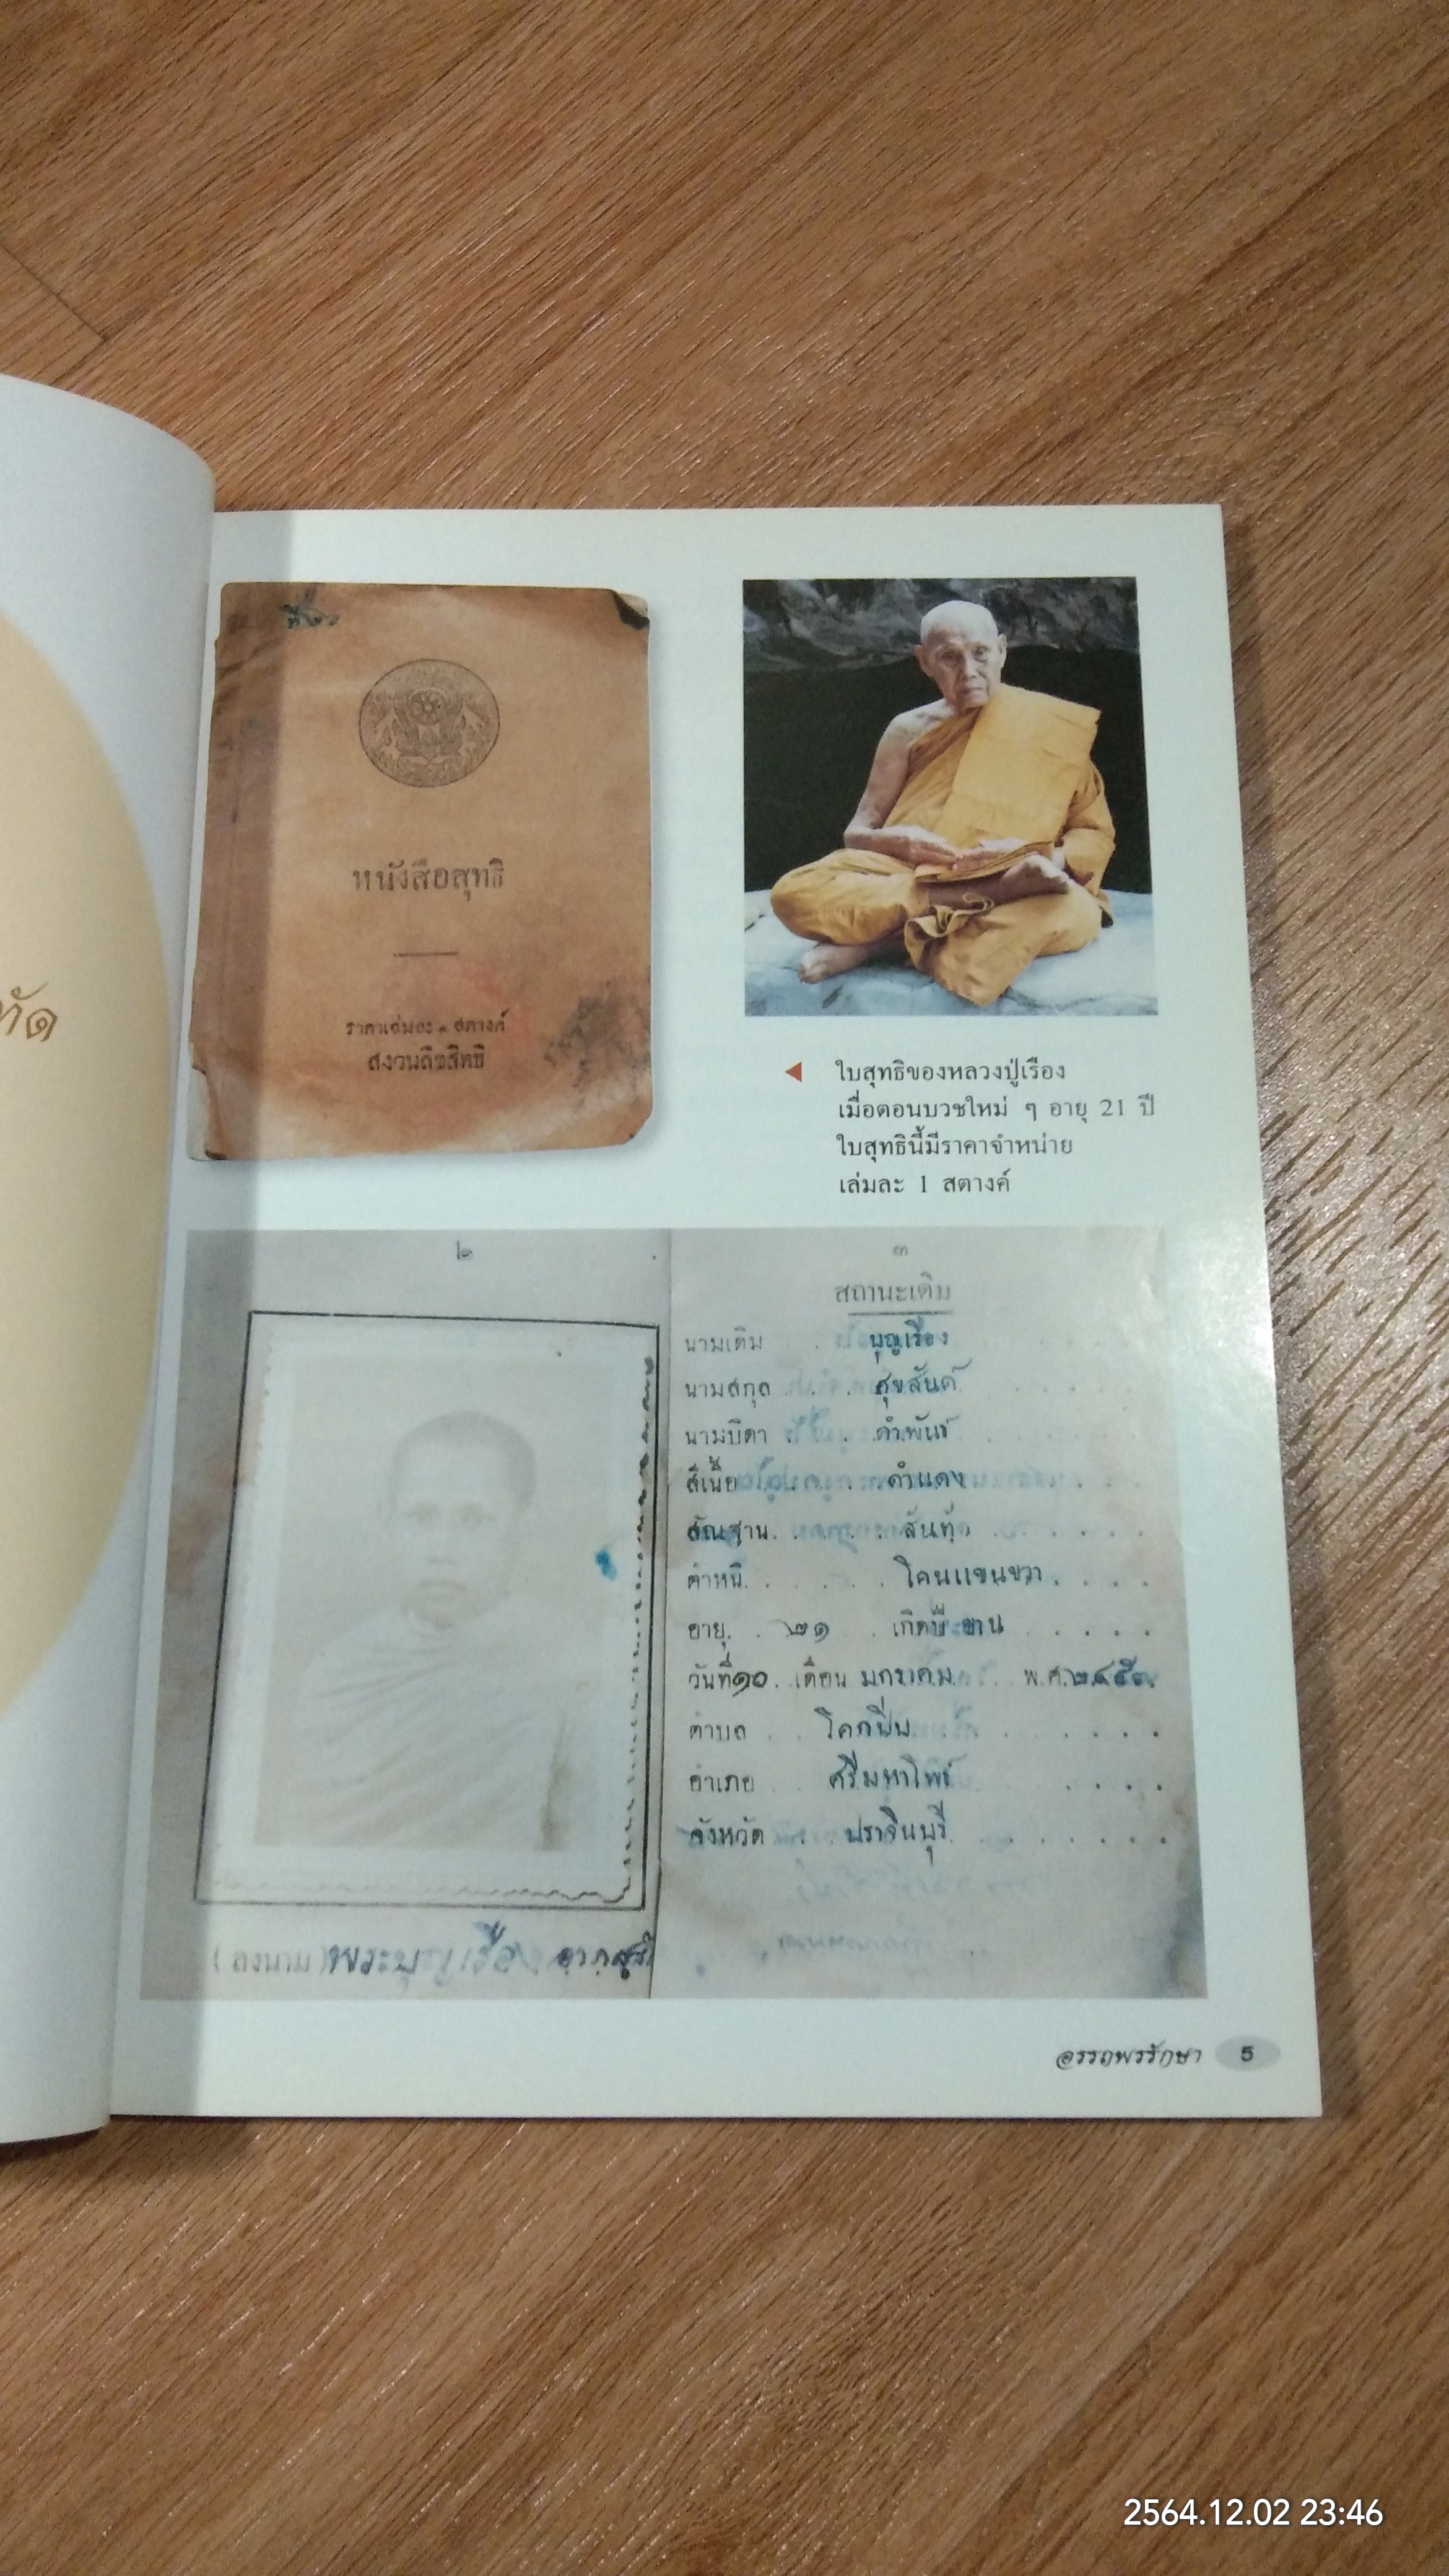 ทัด
หนังสือสุทธิ
ราคาเล่มละ ๑ สตางค์
สงวนลิขสิทธิ์
ใบสุทธิของหลวงปู่เรือง
เมื่อตอนบวชใหม่ ๆ อายุ 21 ปี
ใบสุทธินี้มีราคาจำหน่าย
เล่มละ 1 สตางค์
๒
(ลงนาม) พระบุญเรือง
๓
สถานะเดิม
นามเดิม . บุญเรือง
นามสกุล . . . สุขสันต์
นามบิดา . . คำพันธ์
สีเนื้อ . ดำแดง
สัณฐาน . . . สันทัด
ตำหนิ . . . . โคนแขนขวา . . . .
อายุ . . ๒๑ . เกิดปี ขาน . . . . .
วันที่ ๑๐ . เดือน มกราคม . พ.ศ.
ตำบล . . โคกปีบ . . . . . .
อำเภอ . . ศรีมหาโพธ์ . . . .
จังหวัด . . ปราจีนบุรี . . . . . . .
อรรถพรรักษา 5
2564.12.02 23:46